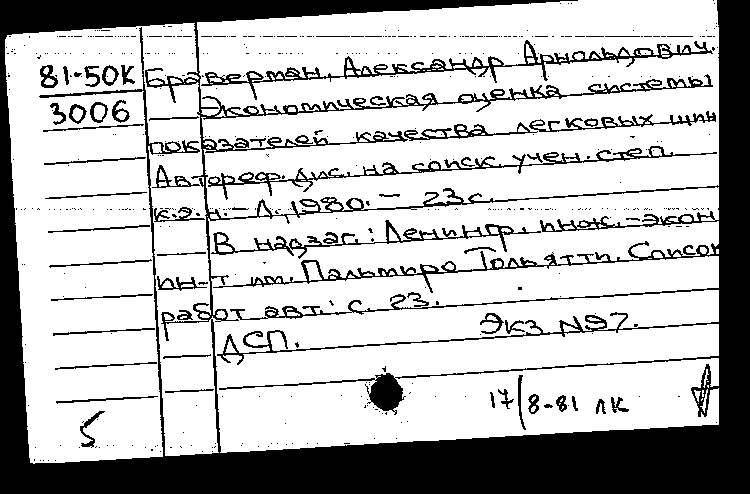 81-50К Браверман, Александр Арнольдович.
3006 Экономическая оценка системы
показателей качества легковых шин
Автореф. дис. на соиск. учен. степ.
к.э.н. - Л., 1980. - 23 с.
В надзаг.: Ленингр. инж.-экон
ин-т им. Пальмиро Тольятти. Список
работ авт.: с. 23.
ДСП. Экз N97.
17/8-81 ЛК
5